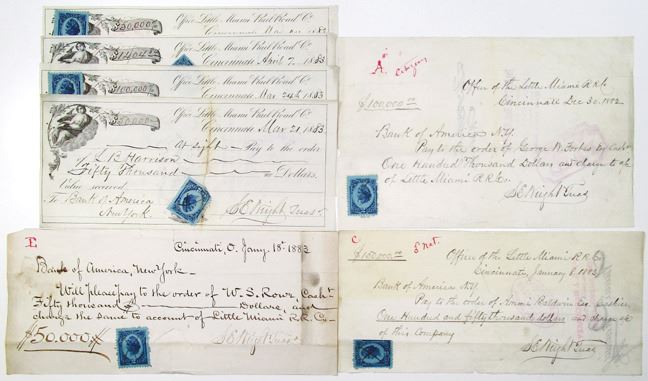 $50,000.00 Office Little Miami Rail Road Co
Cincinnati 1883
Office Little Miami Rail Road Co
Cincinnati April 7 1883
$100,000.00 Office Little Miami Rail Road Co
Cincinnati Mar 24th 1883
$50,000 Office Little Miami Rail Road Co
Cincinnati Mar 21 1883
At sight Pay to the order
of L B Harrison
Fifty Thousand Dollars
Value received
To Bank of America
New York S E Wright Treas
A Citizens
Office of the Little Miami R.R. Co
$100,000.00 Cincinnati Dec 30, 1882
Bank of America N.Y.
Pay to the order of George W. Forbes Cash
One Hundred Thousand Dollars and charge to a/c
of Little Miami R R Co.
S E Wright Treas
E
Cincinnati, O. Jany. 18th 1883
Bank of America New York
Will please pay to the order of W. S. Rowe, Cash
Fifty thousand Dollars, and
charge the same to account of Little Miami R.R. Co
$50.000 S E Wright Treas
C
$ Nat.
Office of the Little Miami R R Co
Cincinnati, January 8, 1883
Bank of America N.Y.
Pay to the order of Baldwin Cashier
One Hundred and fifty thousand dollars and charge
of this Company
S E Wright Treas